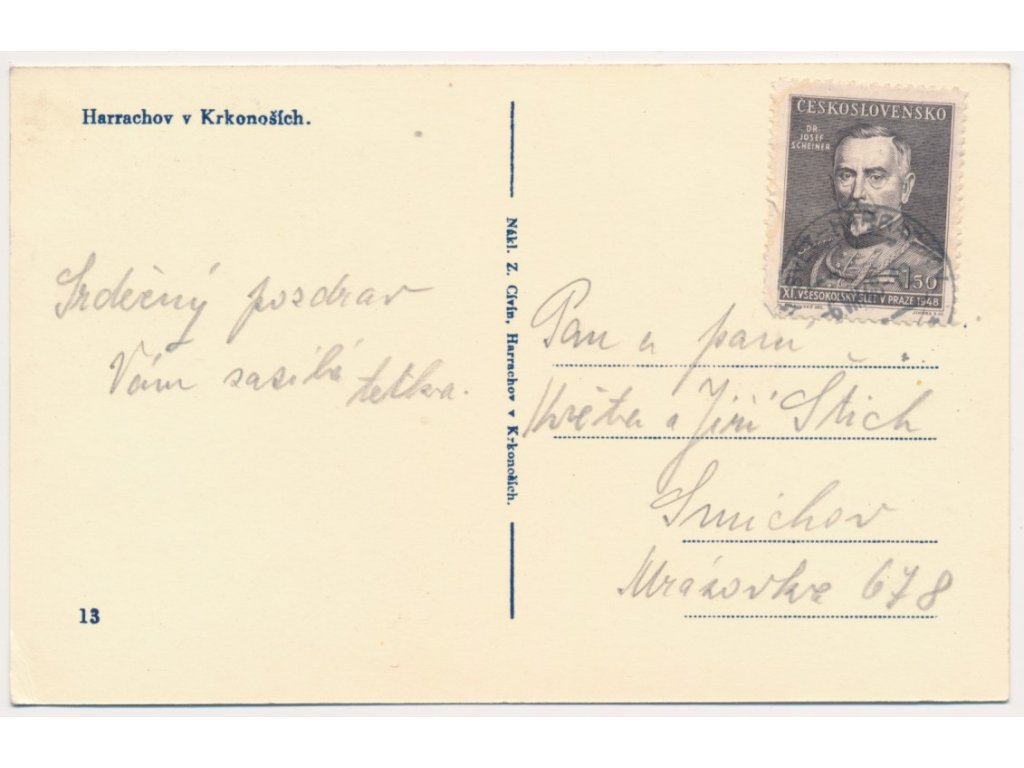 Harrachov v Krkonoších.
Srdečný pozdrav
Vám zasílá tetka.
13
Nákl. Z. Civín, Harrachov v Krkonoších.
ČESKOSLOVENSKO
DR.
JOSEF
SCHEINER
1·50
XI. VŠESOKOLSKÝ SLET V PRAZE 1948
Pan a paní
Květa a Jiří Stich
Smíchov
Mrázovka 678